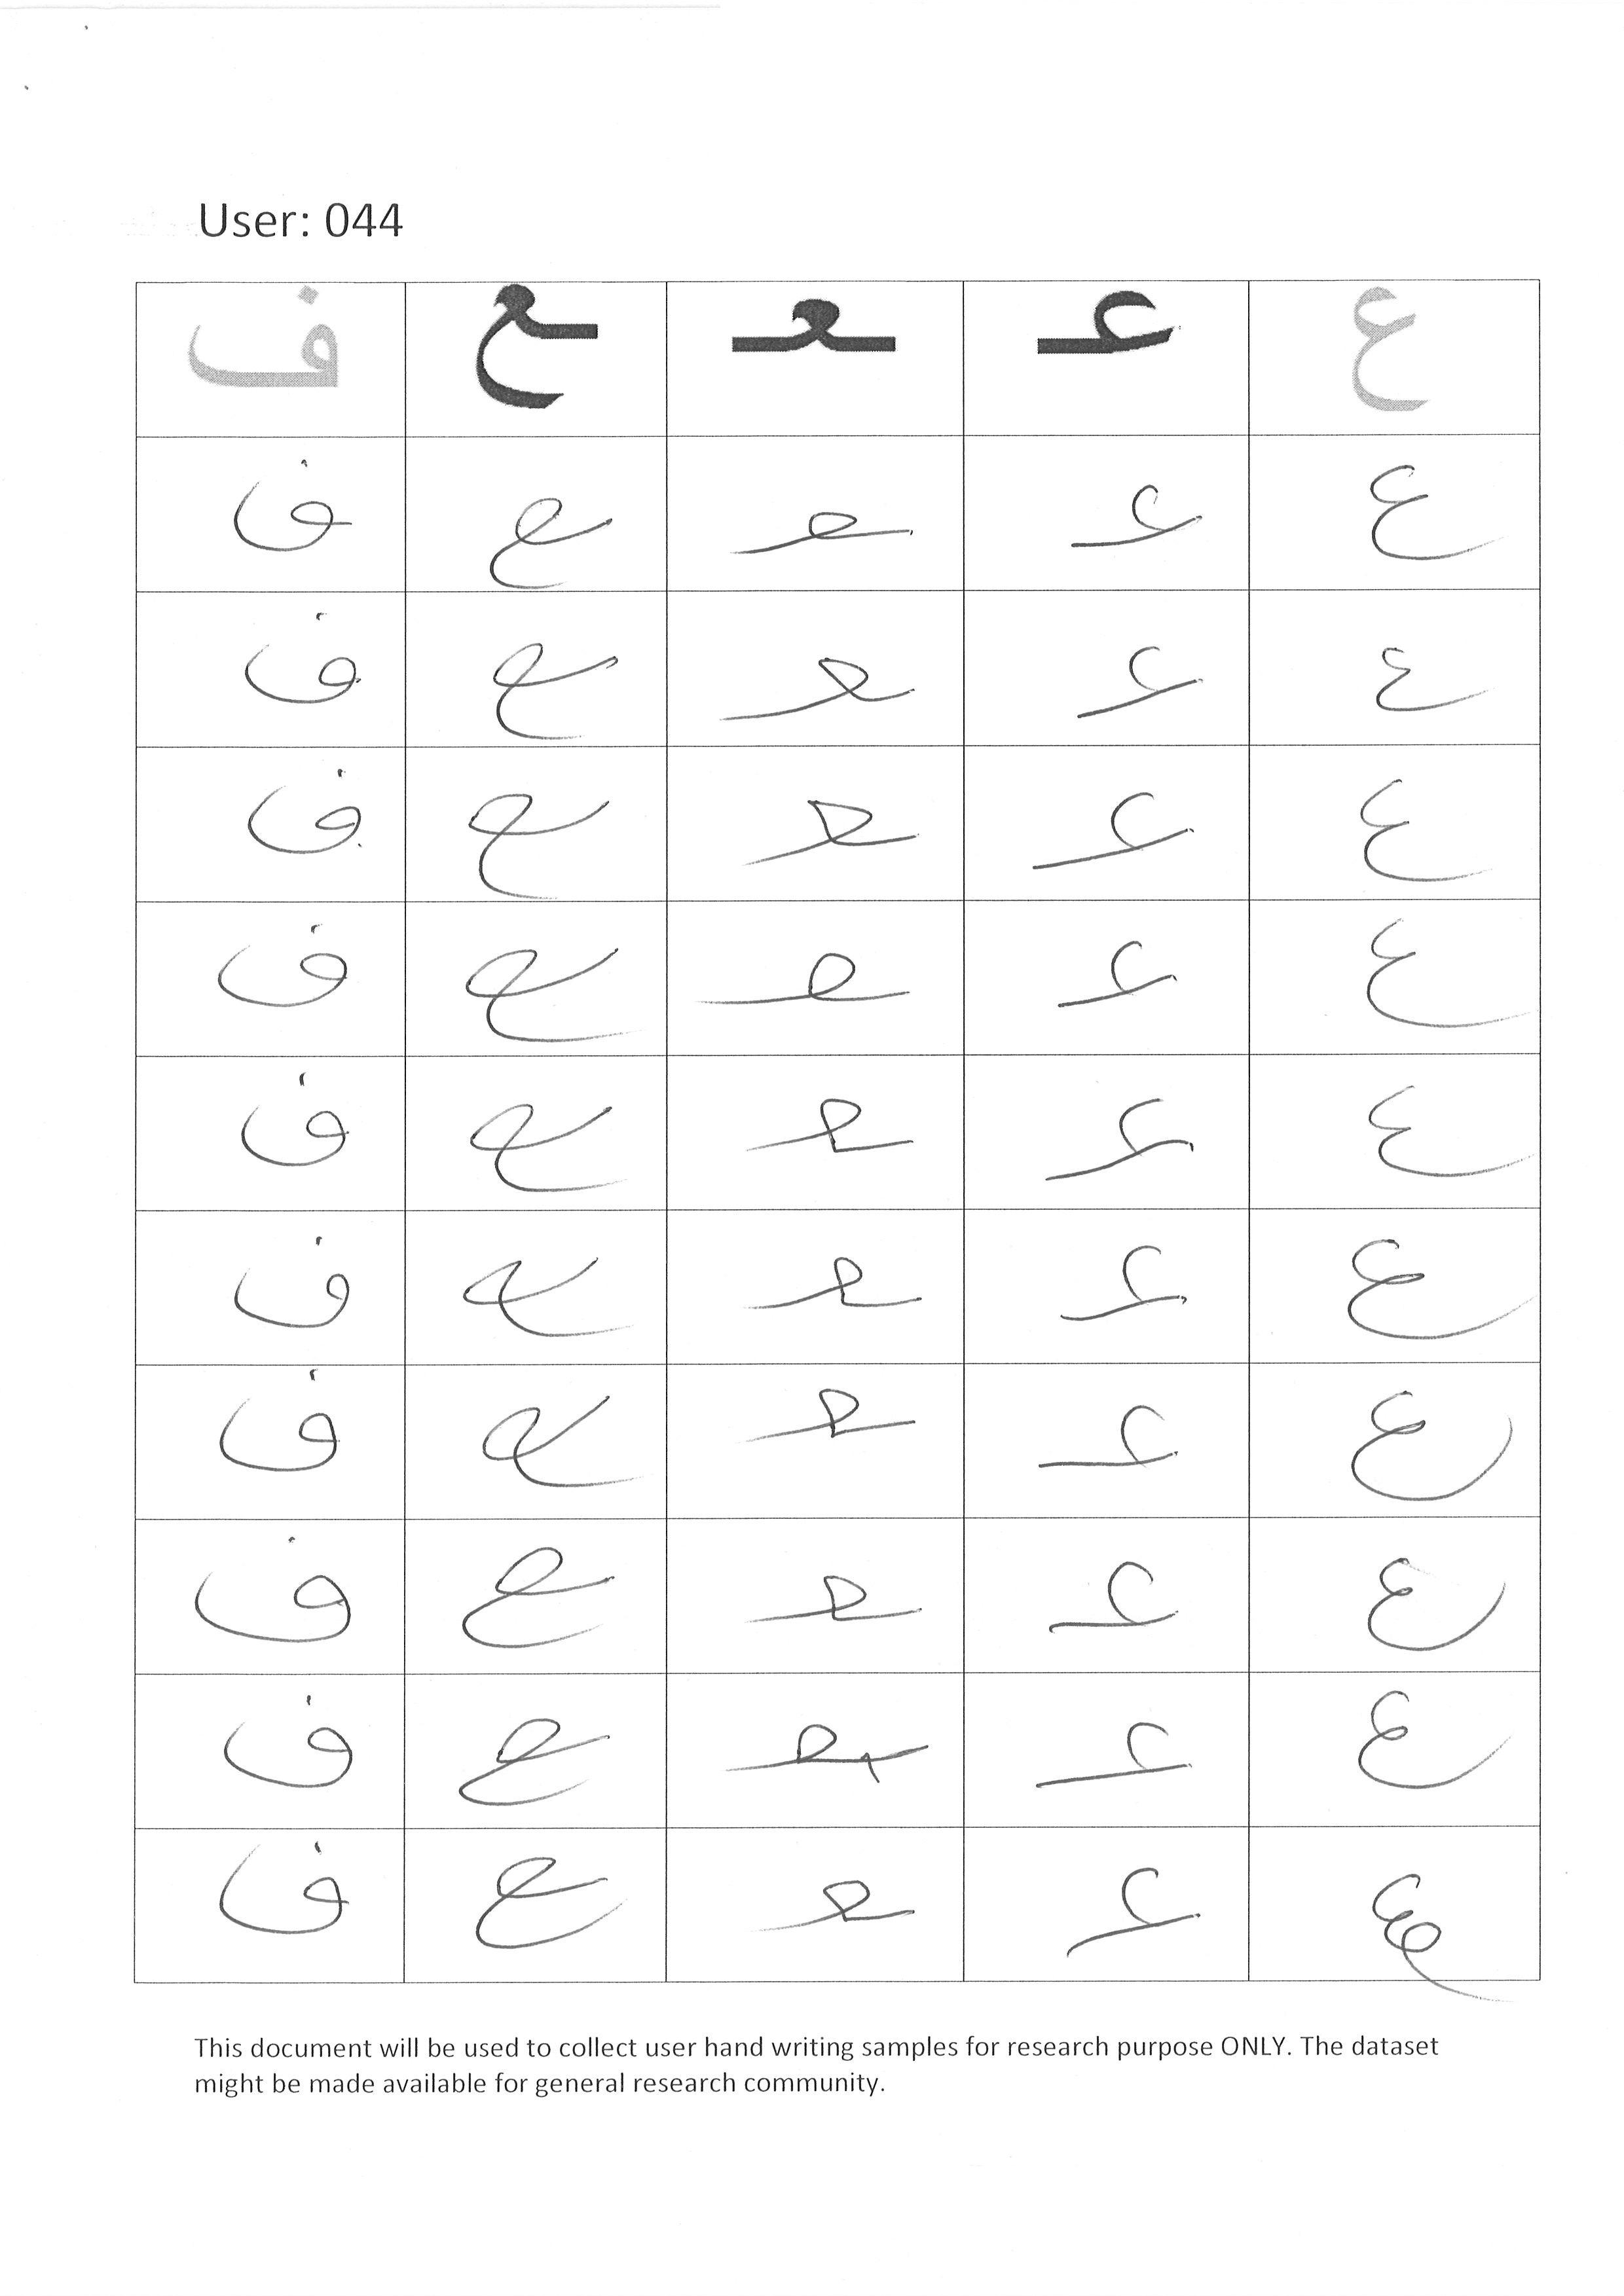 User: 044
ع عـ ـعـ ـع ف
ع عـ ـعـ ـع ف
ع عـ ـعـ ـع ف
ع عـ ـعـ ـع ف
ع عـ ـعـ ـع ف
ع عـ ـعـ ـع ف
ع عـ ـعـ ـع ف
ع عـ ـعـ ـع ف
ع عـ ـعـ ـع ف
ع عـ ـعـ ـع ف
ع عـ ـعـ ـع ف
This document will be used to collect user hand writing samples for research purpose ONLY. The dataset
might be made available for general research community.